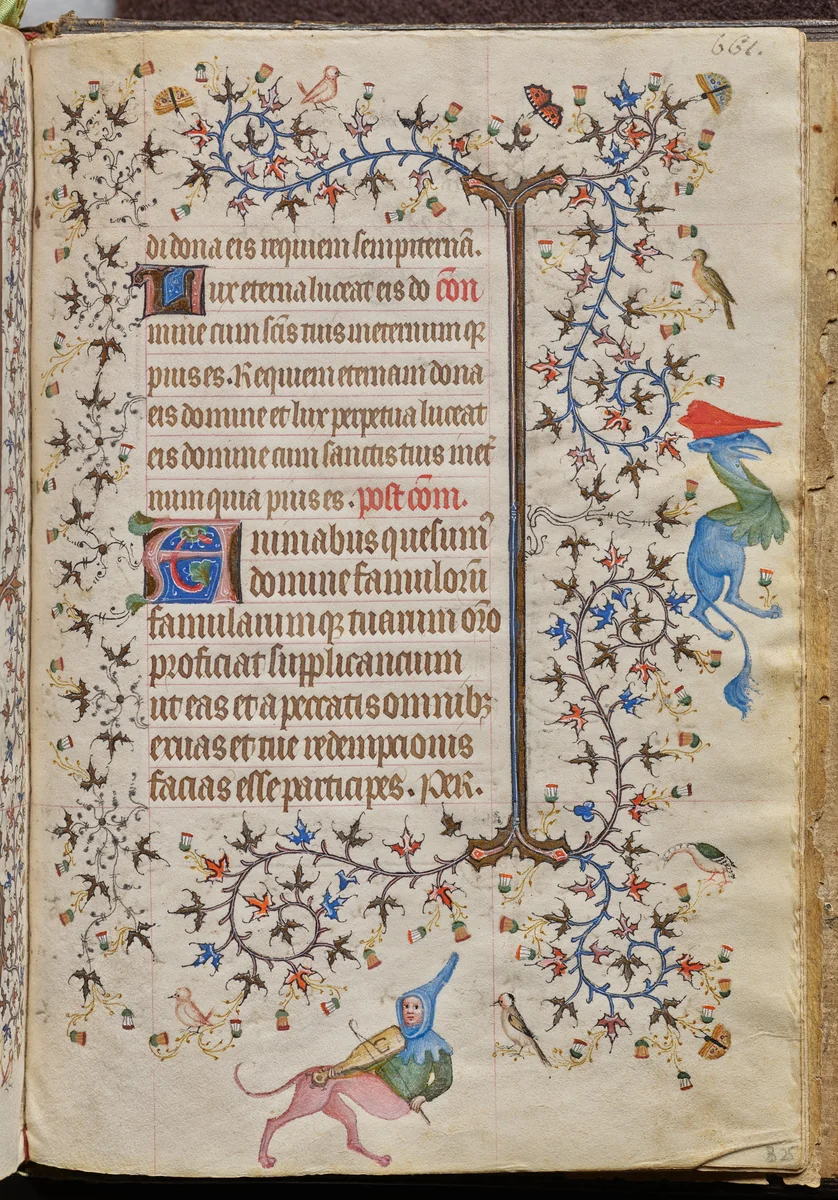 661.
di dona eis requiem sempiternā.
Lux eterna luceat eis do cōn
mine cum scīs tuis in eternum qꝛ
pius es. Requiem eternam dona
eis domine et lux perpetua luceat
eis domine cum sanctis tuis in et̄
num quia pius es. post cōm.
Animabus quesum̄
domine famulorū
famularumqꝫ tuarum orō
proficiat supplicancium
ut eas et a peccatis omnibꝫ
exuas et tue redempcionis
facias esse participes. Per.
825